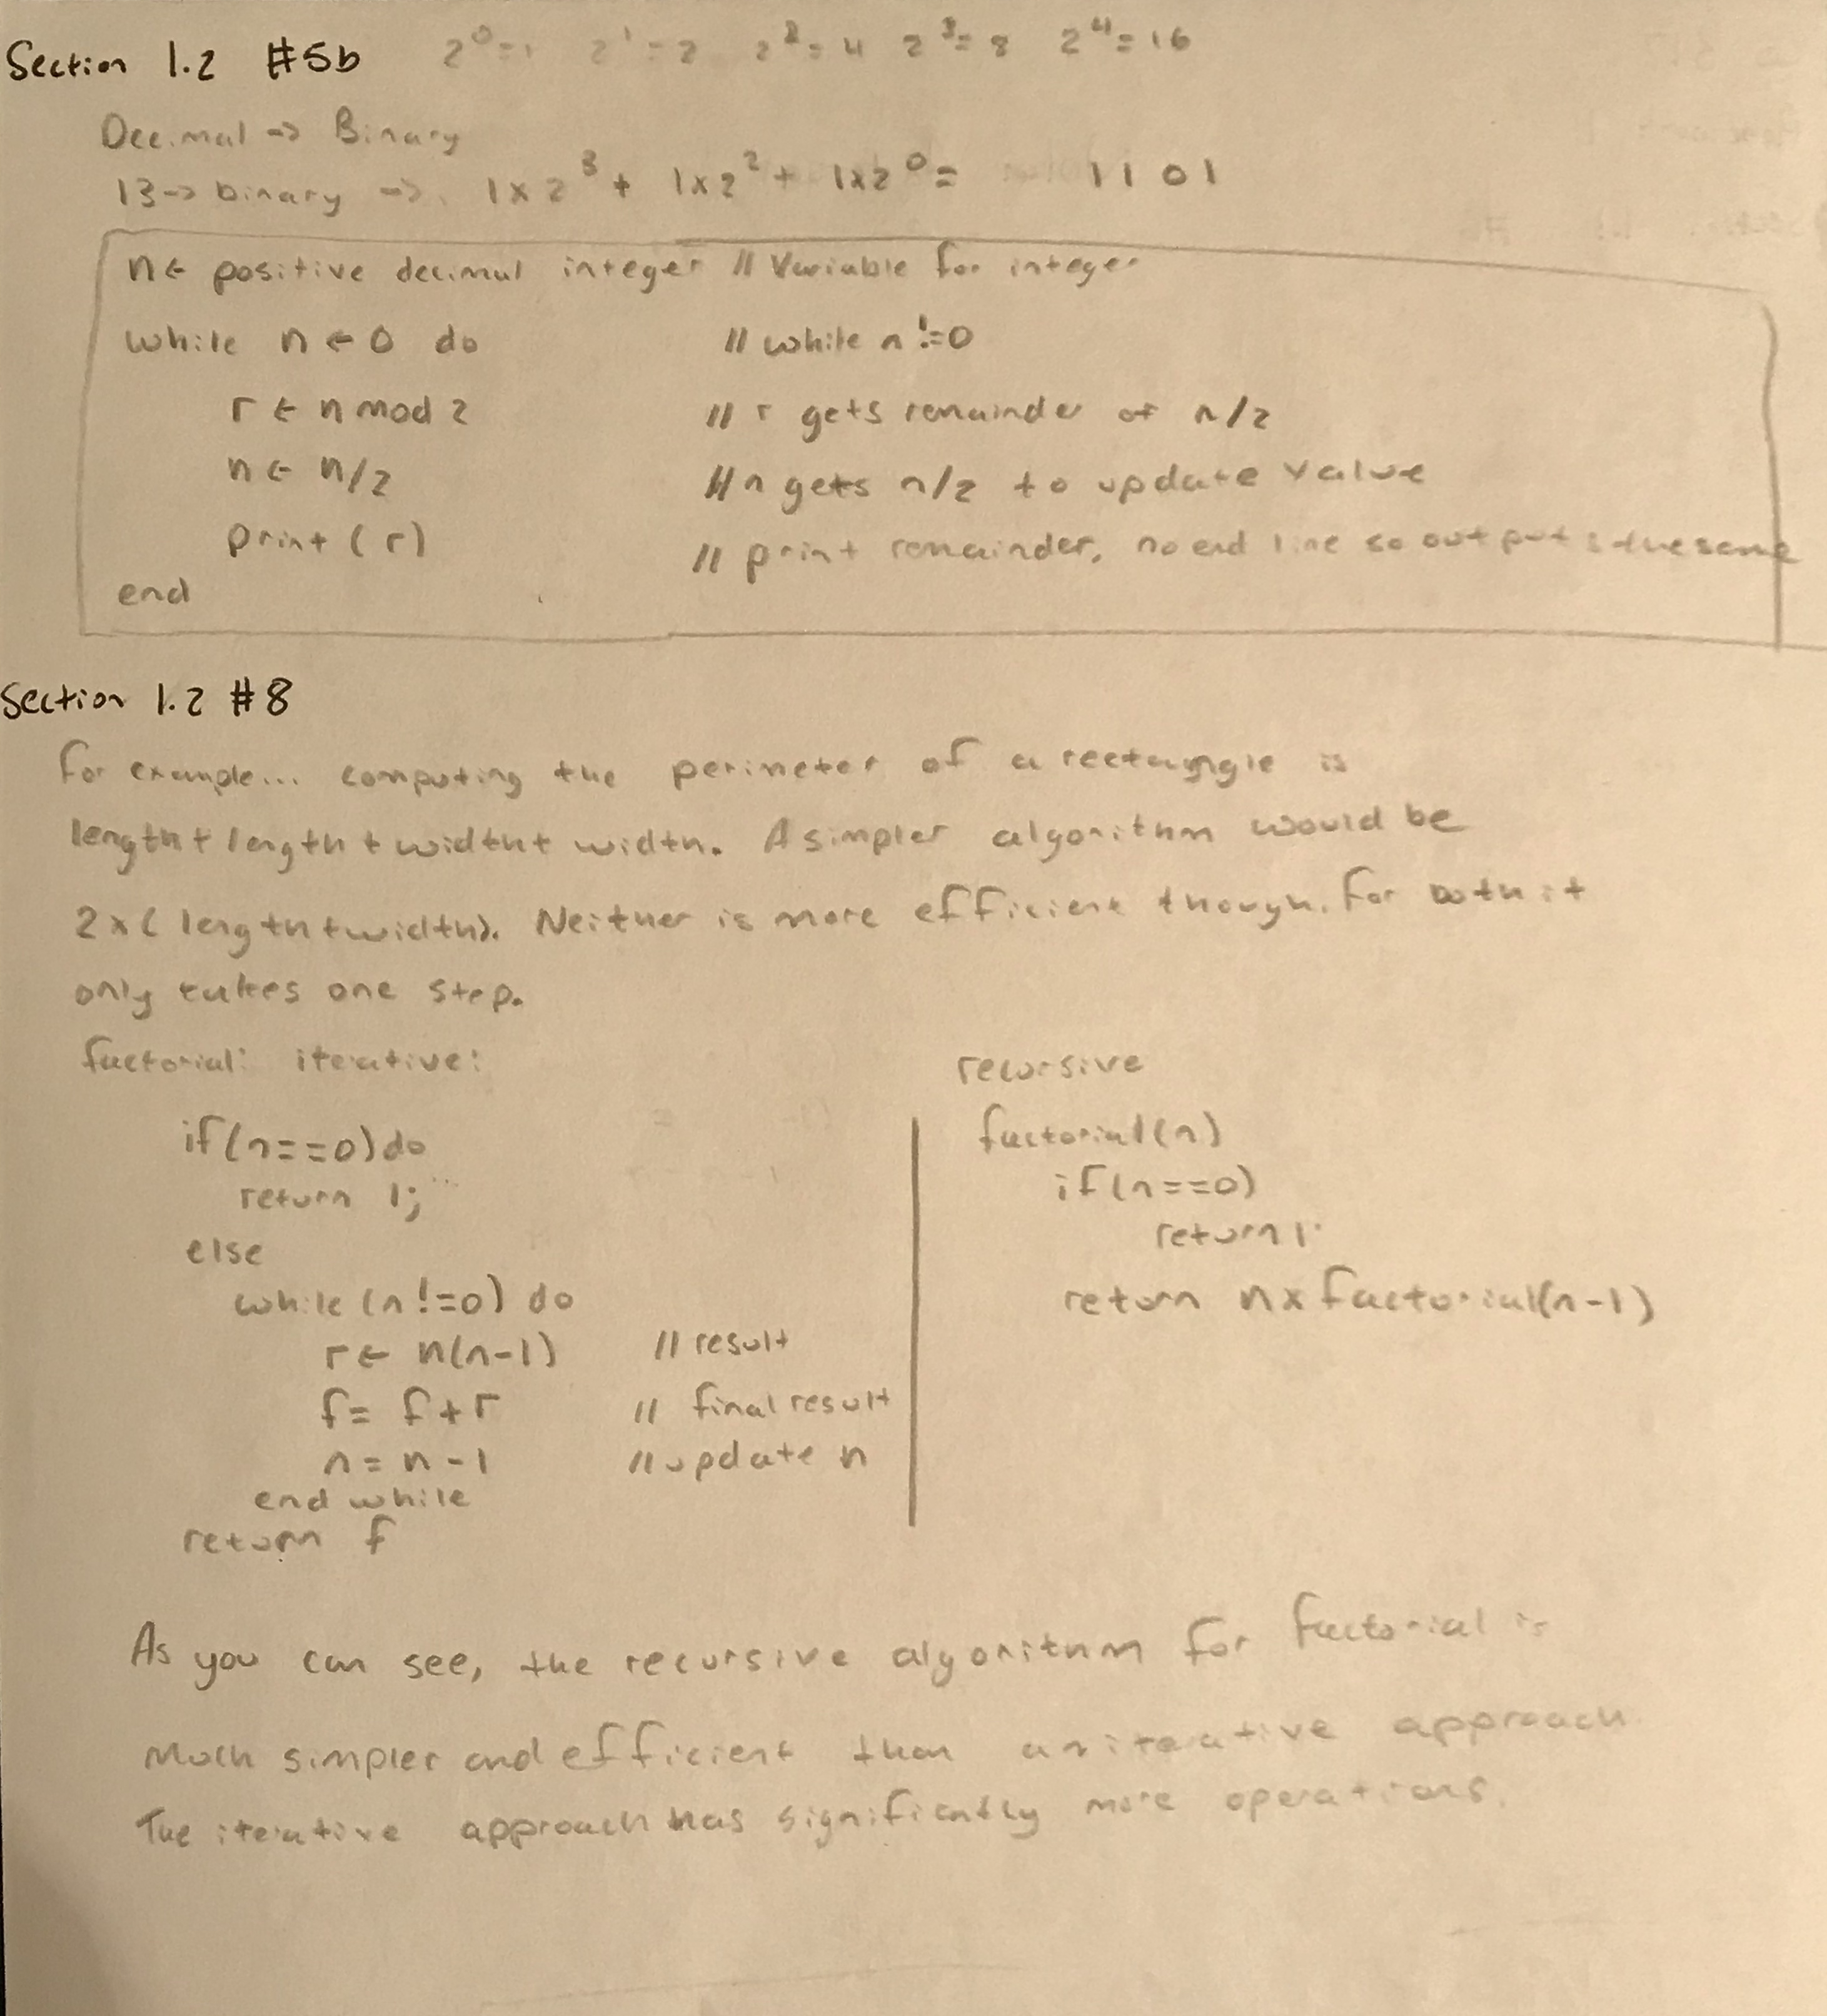 Section 1.2 #5b 2⁰=1 2¹=2 2²=4 2³=8 2⁴=16
Decimal -> Binary
13-> binary -> 1x2³ + 1x2² + 1x2⁰= 1101
n← positive decimal integer // Variable for integer
while n ← 0 do // while n !=0
r ← n mod 2 // r gets remainder of n/2
n ← n/2 // n gets n/2 to update value
print (r) // print remainder, no end line so output is the same
end
Section 1.2 #8
For example... computing the perimeter of a rectangle is
length + length + width + width. A simpler algorithm would be
2x(length+width). Neither is more efficient though. For both it
only takes one step.
factorial: iterative: recursive
if(n==0)do factorial(n)
return 1; if(n==0)
else return 1
while (n!=0) do return n x factorial(n-1)
r← n(n-1) // result
f= f+r // final result
n= n-1 // update n
end while
return f
As you can see, the recursive algorithm for factorial is
much simpler and efficient than an iterative approach
The iterative approach has significantly more operations.